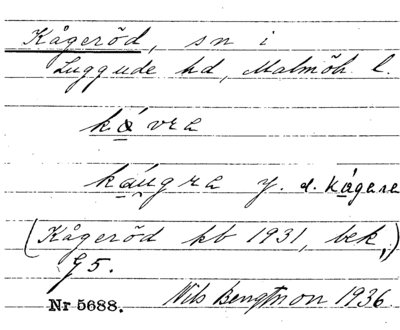 Kågeröd, sn i
Luggude hd, Malmöh. l.
kåvra
káugra y. d. kágara
(Kågeröd kb 1931, bek,)
G 5.
Nr 5688. Nils Bengtsson 1936.